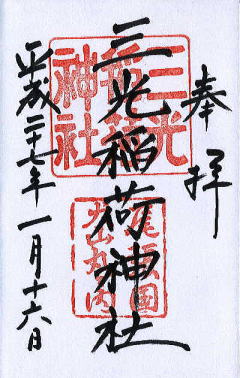 奉拝
三光稲荷神社
平成二十七年一月十六日
三光稲荷神社